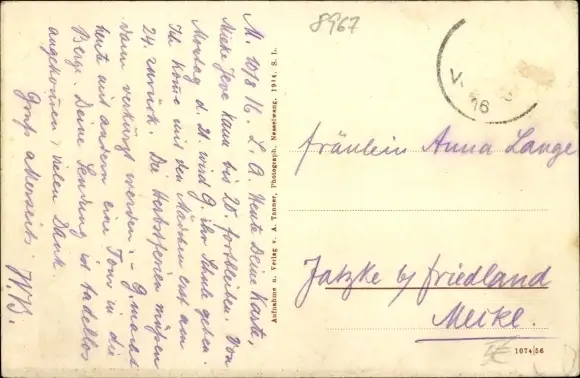 8967
V.
16
M. 10/8 16. L. A. Heute Deine Karte,
kann bis 20. fortbleiben. Von
Montag d. 21. wird G. ihr Schule geben.
Ich komme mit den Mädchen erst am
24. zurück. Die Herbstferien müssen
dann verkürzt werden. – G. macht
heute mit andern eine Tour in die
Berge. Deine Sendung ist tadellos
angekommen, vielen Dank.
Gruß allerseits.
W.B.
Aufnahme u. Verlag v. A. Tanner, Photograph, Nesselwang. 1914. S. 1.
Fräulein Anna Lange
Jatzke b/ Friedland
Meckl.
5€
1074 56